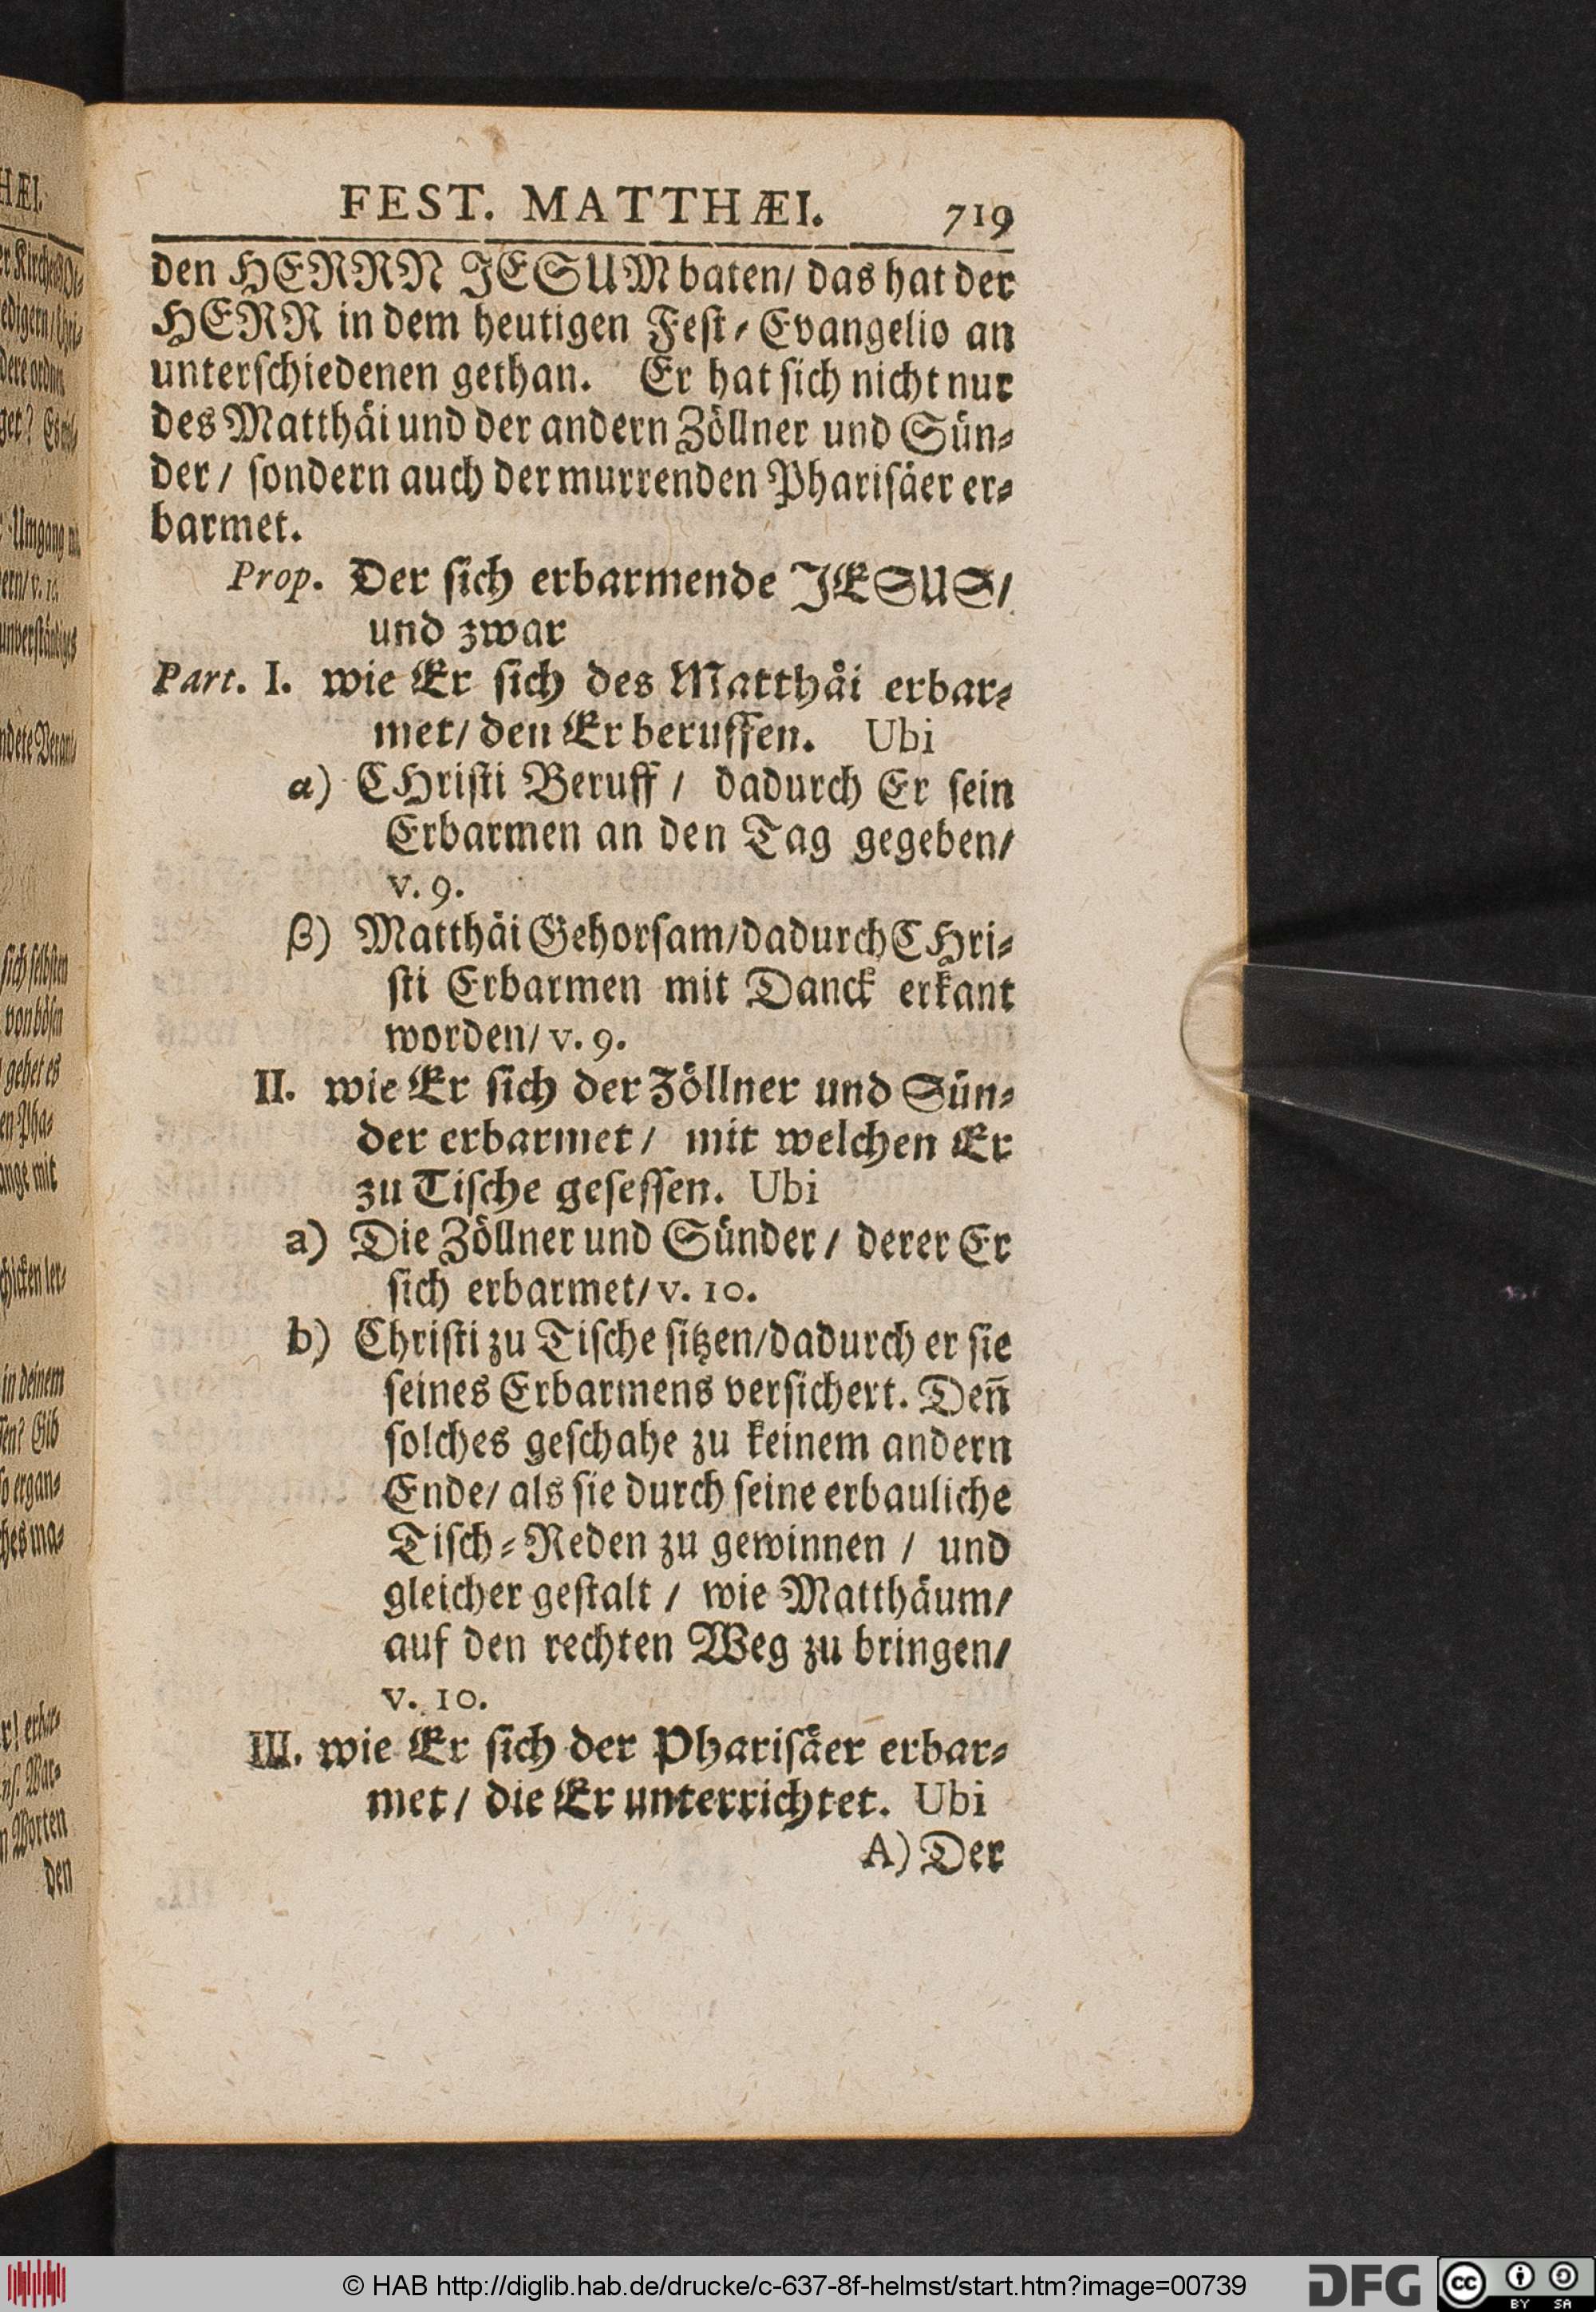 FEST. MATTHÆI. 719
den HERRN JESUM baten/ das hat der
HERR in dem heutigen Fest-Evangelio an
unterschiedenen gethan. Er hat sich nicht nur
des Matthäi und der andern Zöllner und Sün-
der/ sondern auch der murrenden Pharisäer er-
barmet.
Prop. Der sich erbarmende JESUS/
und zwar
Part. I. wie Er sich des Matthäi erbar-
met/ den Er beruffen. Ubi
α) CHristi Beruff/ dadurch Er sein
Erbarmen an den Tag gegeben/
v. 9.
β) Matthäi Gehorsam/dadurch CHri-
sti Erbarmen mit Danck erkant
worden/ v. 9.
II. wie Er sich der Zöllner und Sün-
der erbarmet/ mit welchen Er
zu Tische gesessen. Ubi
a) Die Zöllner und Sünder/ derer Er
sich erbarmet/ v. 10.
b) Christi zu Tische sitzen/dadurch er sie
seines Erbarmens versichert. Deñ
solches geschahe zu keinem andern
Ende/ als sie durch seine erbauliche
Tisch-Reden zu gewinnen/ und
gleicher gestalt/ wie Matthäum/
auf den rechten Weg zu bringen/
v. 10.
III. wie Er sich der Pharisäer erbar-
met/ die Er unterrichtet. Ubi
A) Der
© HAB http://diglib.hab.de/drucke/c-637-8f-helmst/start.htm?image=00739
DFG
cc BY SA